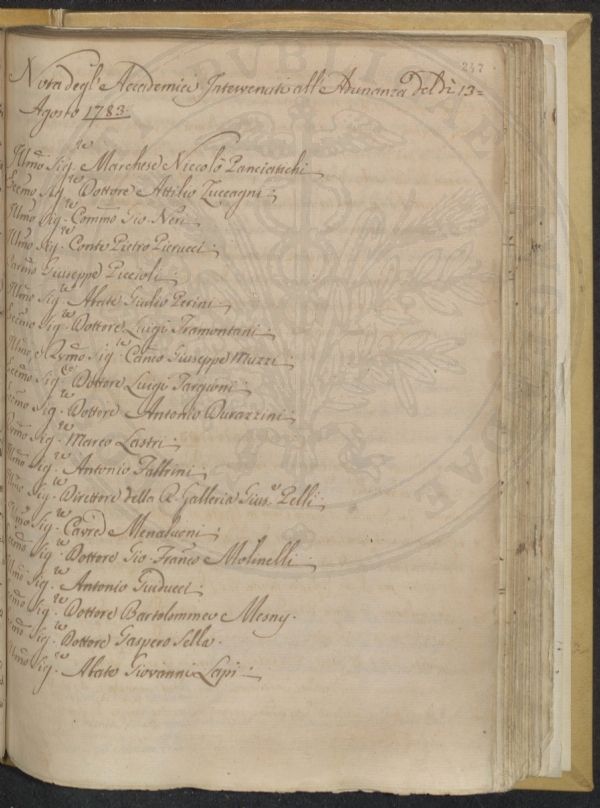 247
Nota degl'Accademici Intervenuti all'Adunanza del dì 13=
Agosto 1783.
Illmo Sig.re Marchese Niccolò Panciatichi
Eccmo Sig.re Dottore Attilio Zuccagni
Illmo Sig.re Commo Gio. Neri
Illmo Sig.re Conte Pietro Pierucci
Giuseppe Piccioli
Illmo Sig.re Abate Giulio Perini
Eccmo Sig.re Dottore Luigi Tramontani
Illmo, e Rymo Sig.re Canco Giuseppe Muzzi
Eccmo Sig.re Dottore Luigi Targioni
Eccmo Sig.re Dottore Antonio Durazzini
Sig.re Marco Lastri
Sig.re Antonio
Sig.re Direttore della R. Galleria Gius.e Pelli
Sig.re Cavre
Sig.re Dottore Gio. Franco Molinelli
Sig.re Antonio Guiducci
Sig.re Dottore Bartolommeo Mesny.
Sig.re Dottore Gaspero Sella.
Illmo Sig.re Abate Giovanni Lapi